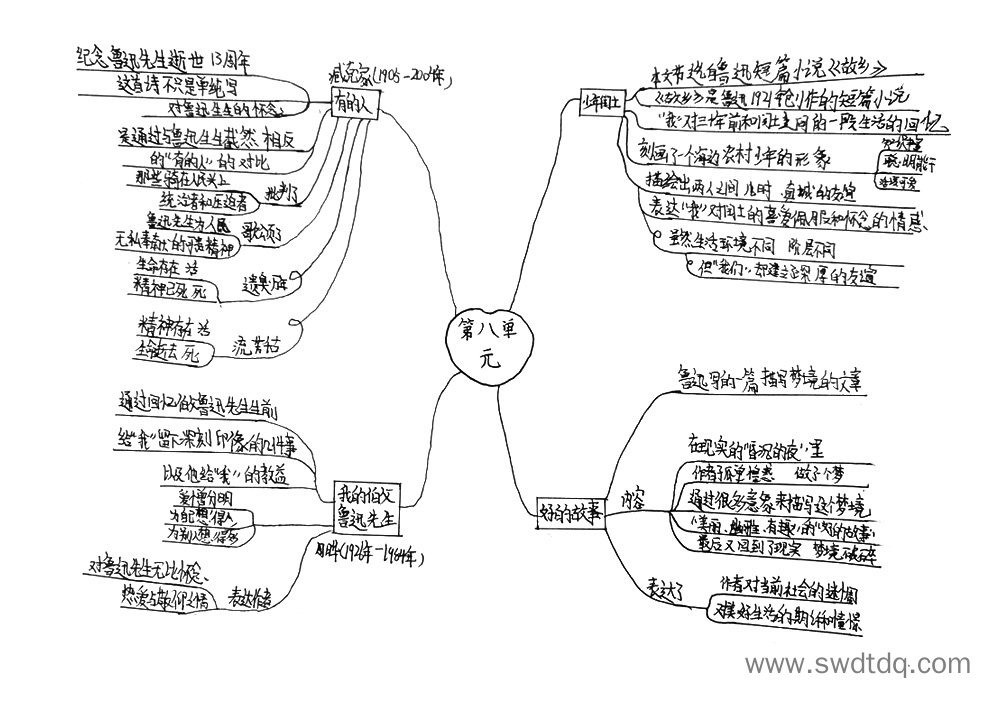 第八单
元
少年闰土
本文节选自鲁迅短篇小说《故乡》
《故乡》是鲁迅1921年创作的短篇小说
"我"对三十年前和闰土之间的一段生活的回忆
刻画了一个海边农村少年的形象
知识丰富
聪明能干
活泼可爱
描绘出两人之间儿时真诚的友谊
表达"我"对闰土的喜爱佩服和怀念的情感
虽然生活环境不同 阶层不同
但"我们"却建立了深厚的友谊
好的故事
鲁迅写的一篇描写梦境的文章
内容
在现实的"昏沉的夜"里
作者孤单惶惑 做了个梦
通过很多意象来描写这个梦境
"美丽、幽雅、有趣"的"好的故事"
最后又回到了现实 梦境破碎
表达了
作者对当前社会的迷惘
对美好生活的期待和憧憬
有的人
臧克家(1905-2004年)
纪念鲁迅先生逝世13周年
这首诗不只是单纯写
对鲁迅先生的怀念
是通过与鲁迅先生截然相反
的"有的人"的对比
批判了
那些骑在人民头上
统治者和压迫者
歌颂了
鲁迅先生为人民
无私奉献的可贵精神
遗臭万年
生命存在 活
精神已死 死
流芳千古
精神存在 活
生命逝去 死
我的伯父
鲁迅先生
周晔(1926年-1984年)
通过回忆伯父鲁迅先生生前
给"我"留下深刻印象的几件事
以及他给"我"的教益
爱憎分明
为自己想得少
为别人想得多
表达作者
对鲁迅先生无比怀念、
热爱与敬仰之情
www.swdtdq.com